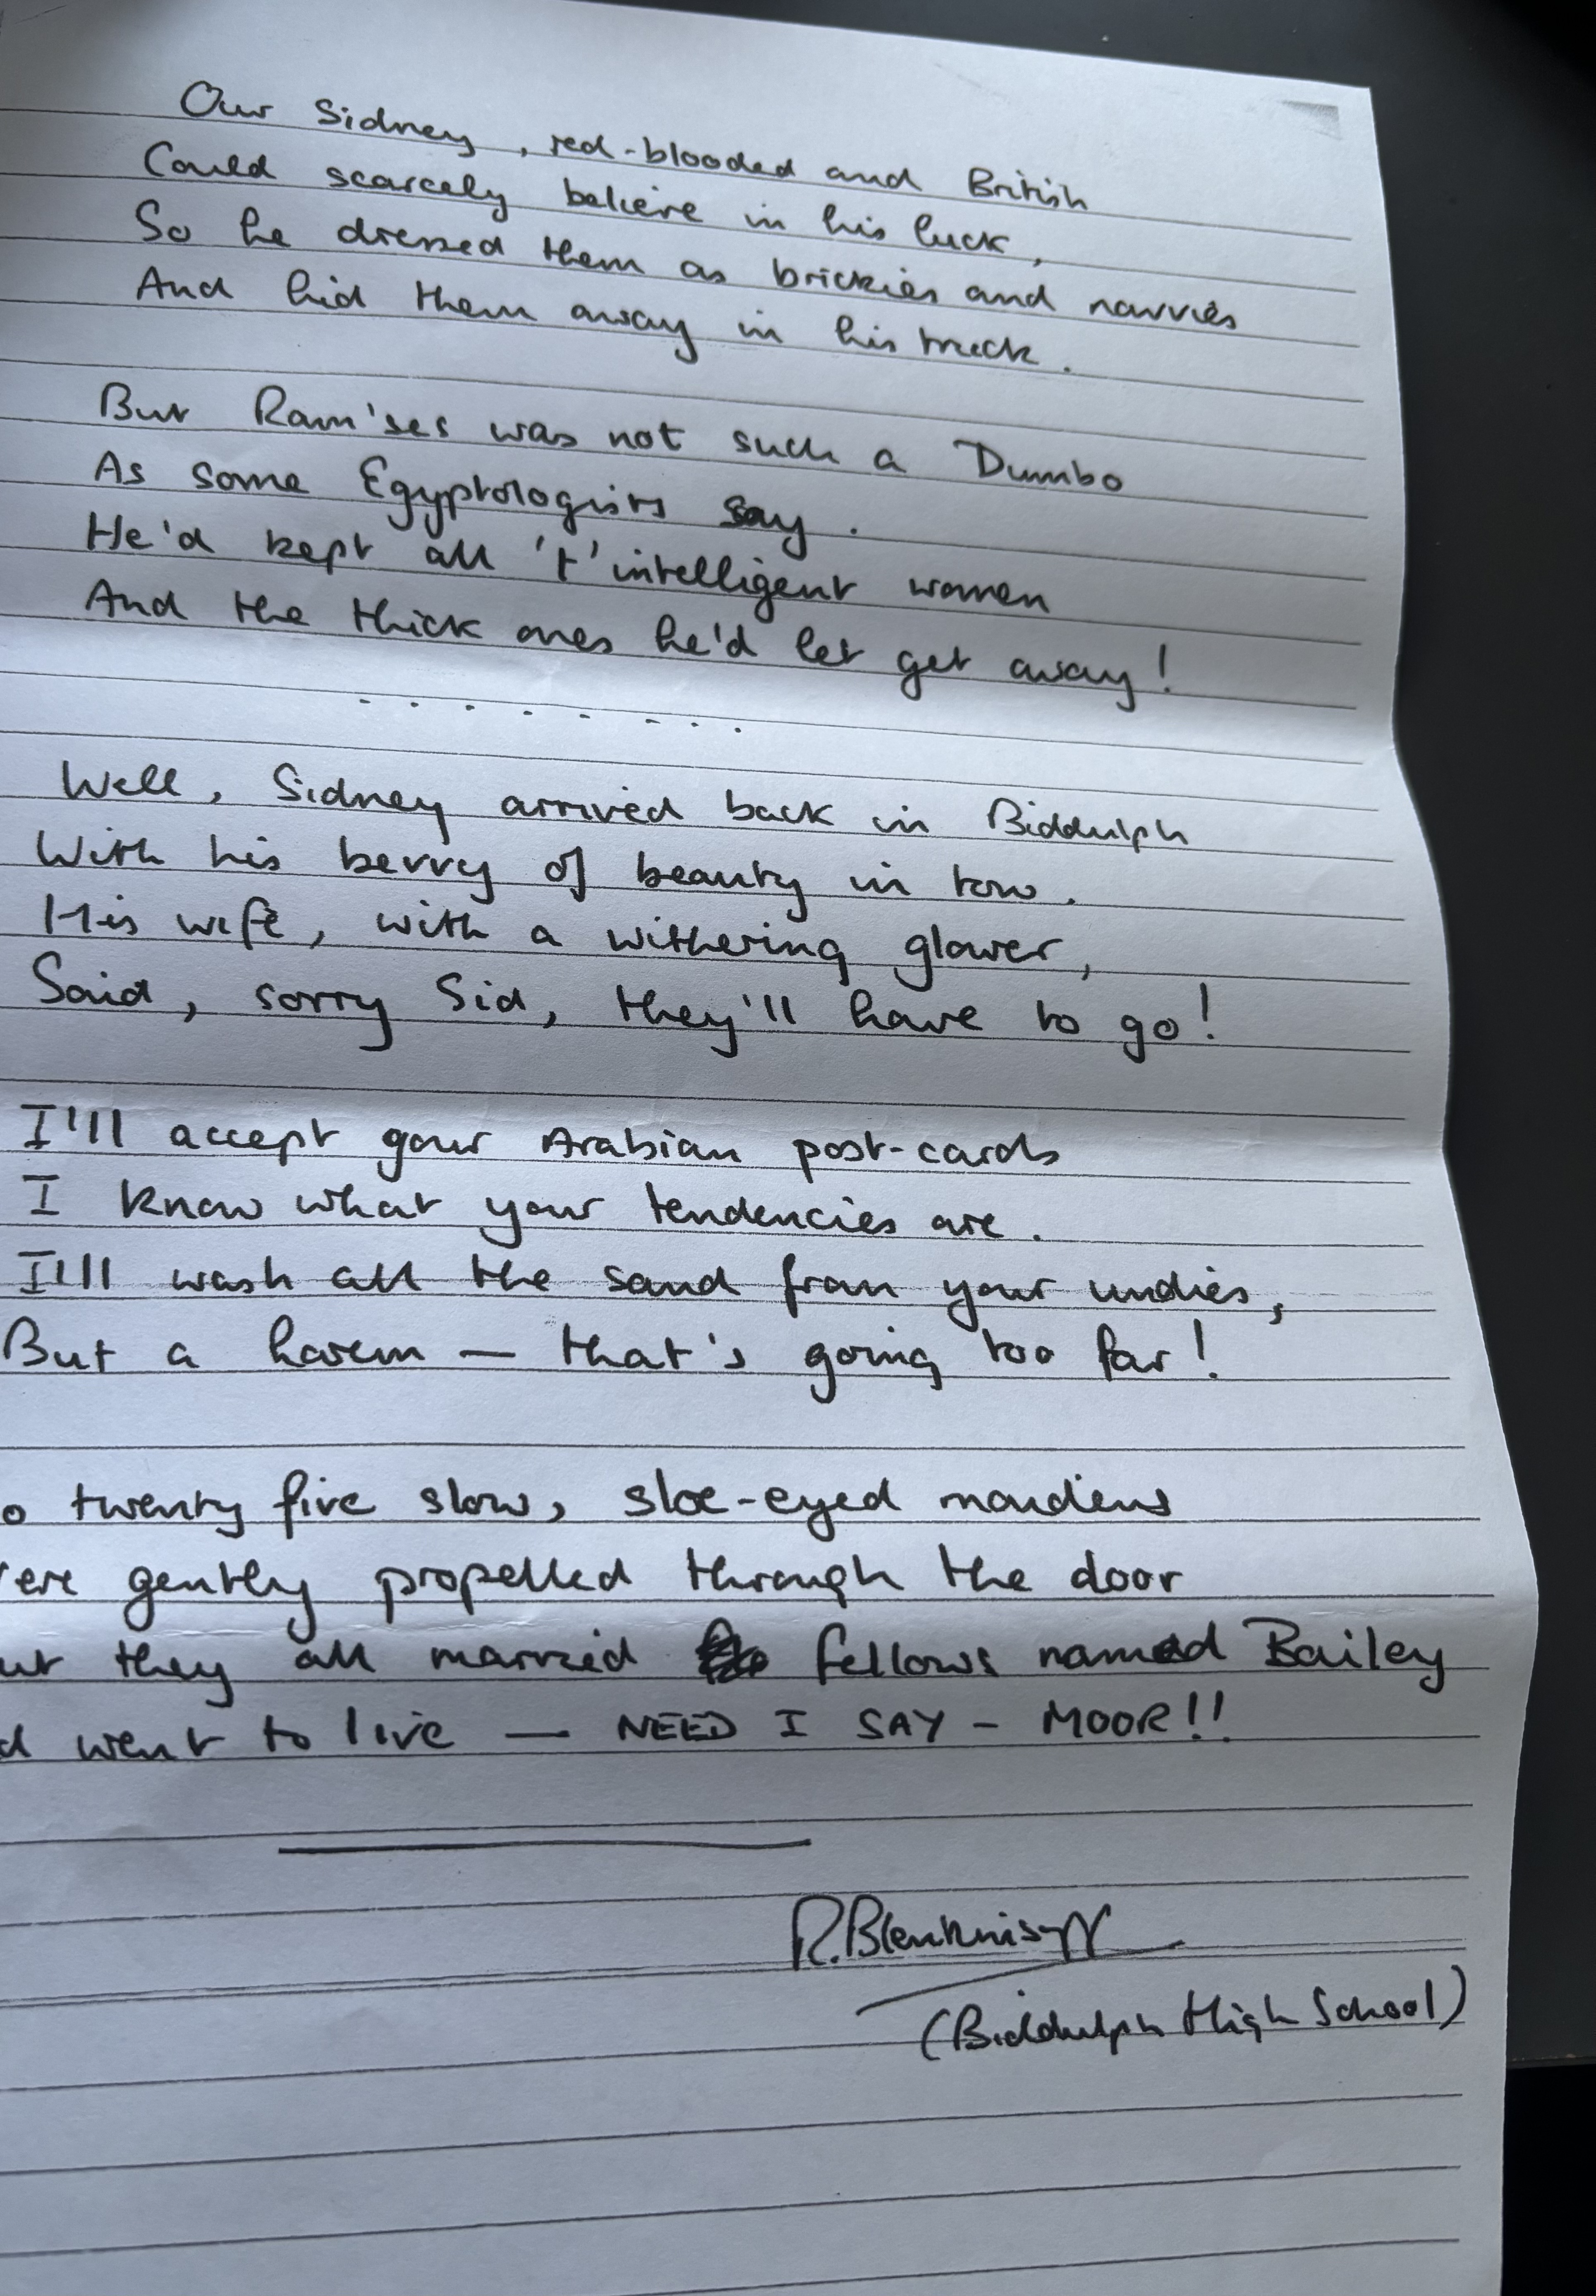 Our Sidney, red-blooded and British
Could scarcely believe in his luck,
So he dressed them as brickies and navvies
And hid them away in his truck.
But Ram'ses was not such a Dumbo
As some Egyptologists say.
He'd kept all 't' intelligent women
And the thick ones he'd let get away!
. . . . . . . .
Well, Sidney arrived back in Biddulph
With his bevvy of beauty in tow.
His wife, with a withering glower,
Said, sorry Sid, they'll have to go!
I'll accept your Arabian post-cards
I know what your tendencies are.
I'll wash all the sand from your undies,
But a harem — that's going too far!
o twenty five slow, sloe-eyed maidens
ere gently propelled through the door
ut they all married fellows named Bailey
d went to live — NEED I SAY - MOOR!!
R. Blenkinsopp
(Biddulph High School)